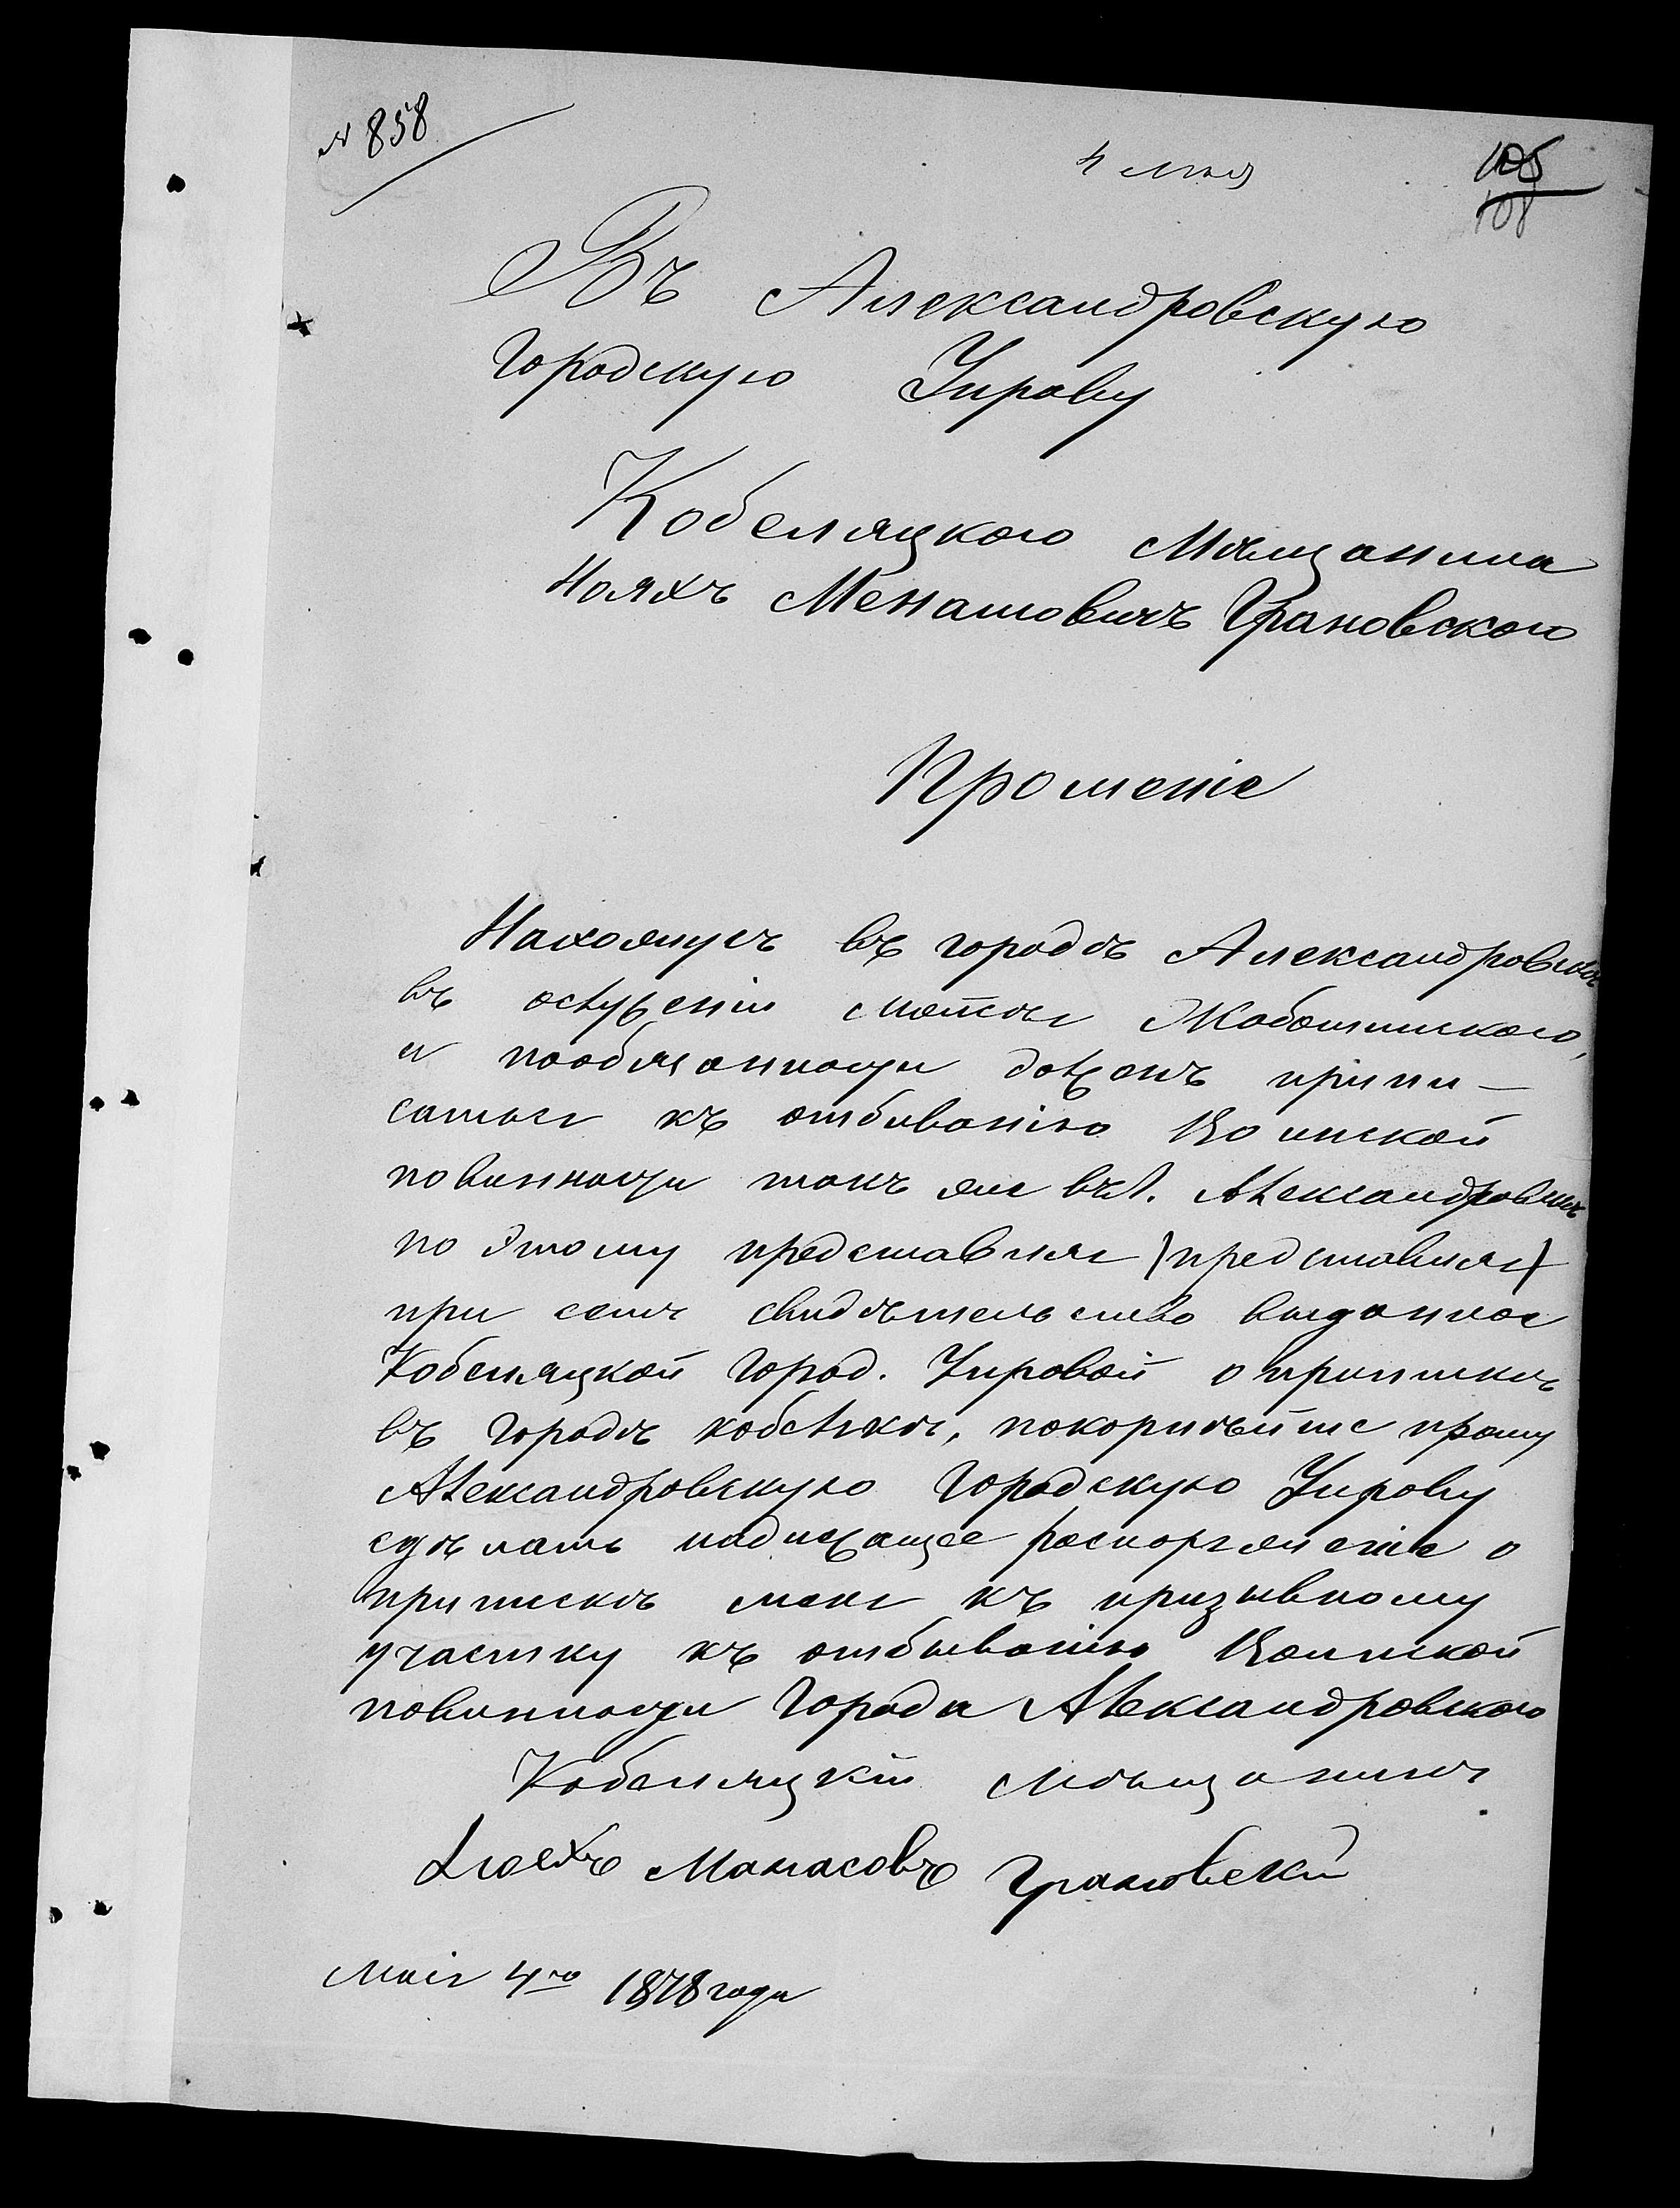 № 858
4 мая
105
108
Въ Александровскую
Городскую Управу
Кобеляцкого Мѣщанина
Нояхъ Менашовичъ Грановского
Прошеніе
Находящусъ въ городѣ Александровскѣ
въ услуженіи Жаботинского,
и пообязанности долженъ припи-
саться къ отбиванію Воинской
повинности такъ же въ г. Александровскѣ
по этому представляя (представляя)
при семъ свидѣтельство выданное
Кобеляцкой Город. Управой о припискѣ
въ городѣ кобелякѣ, покорнѣйше прошу
Александровскую Городскую Управу
сдѣлать надлежащее распоряженіе о
припискѣ меня къ призывному
участку къ отбыванію Воинской
повинности Города Александровского
Кобеляцкій Мѣщанинъ
Манасовъ Грановскій
Маія 4го 1878 года